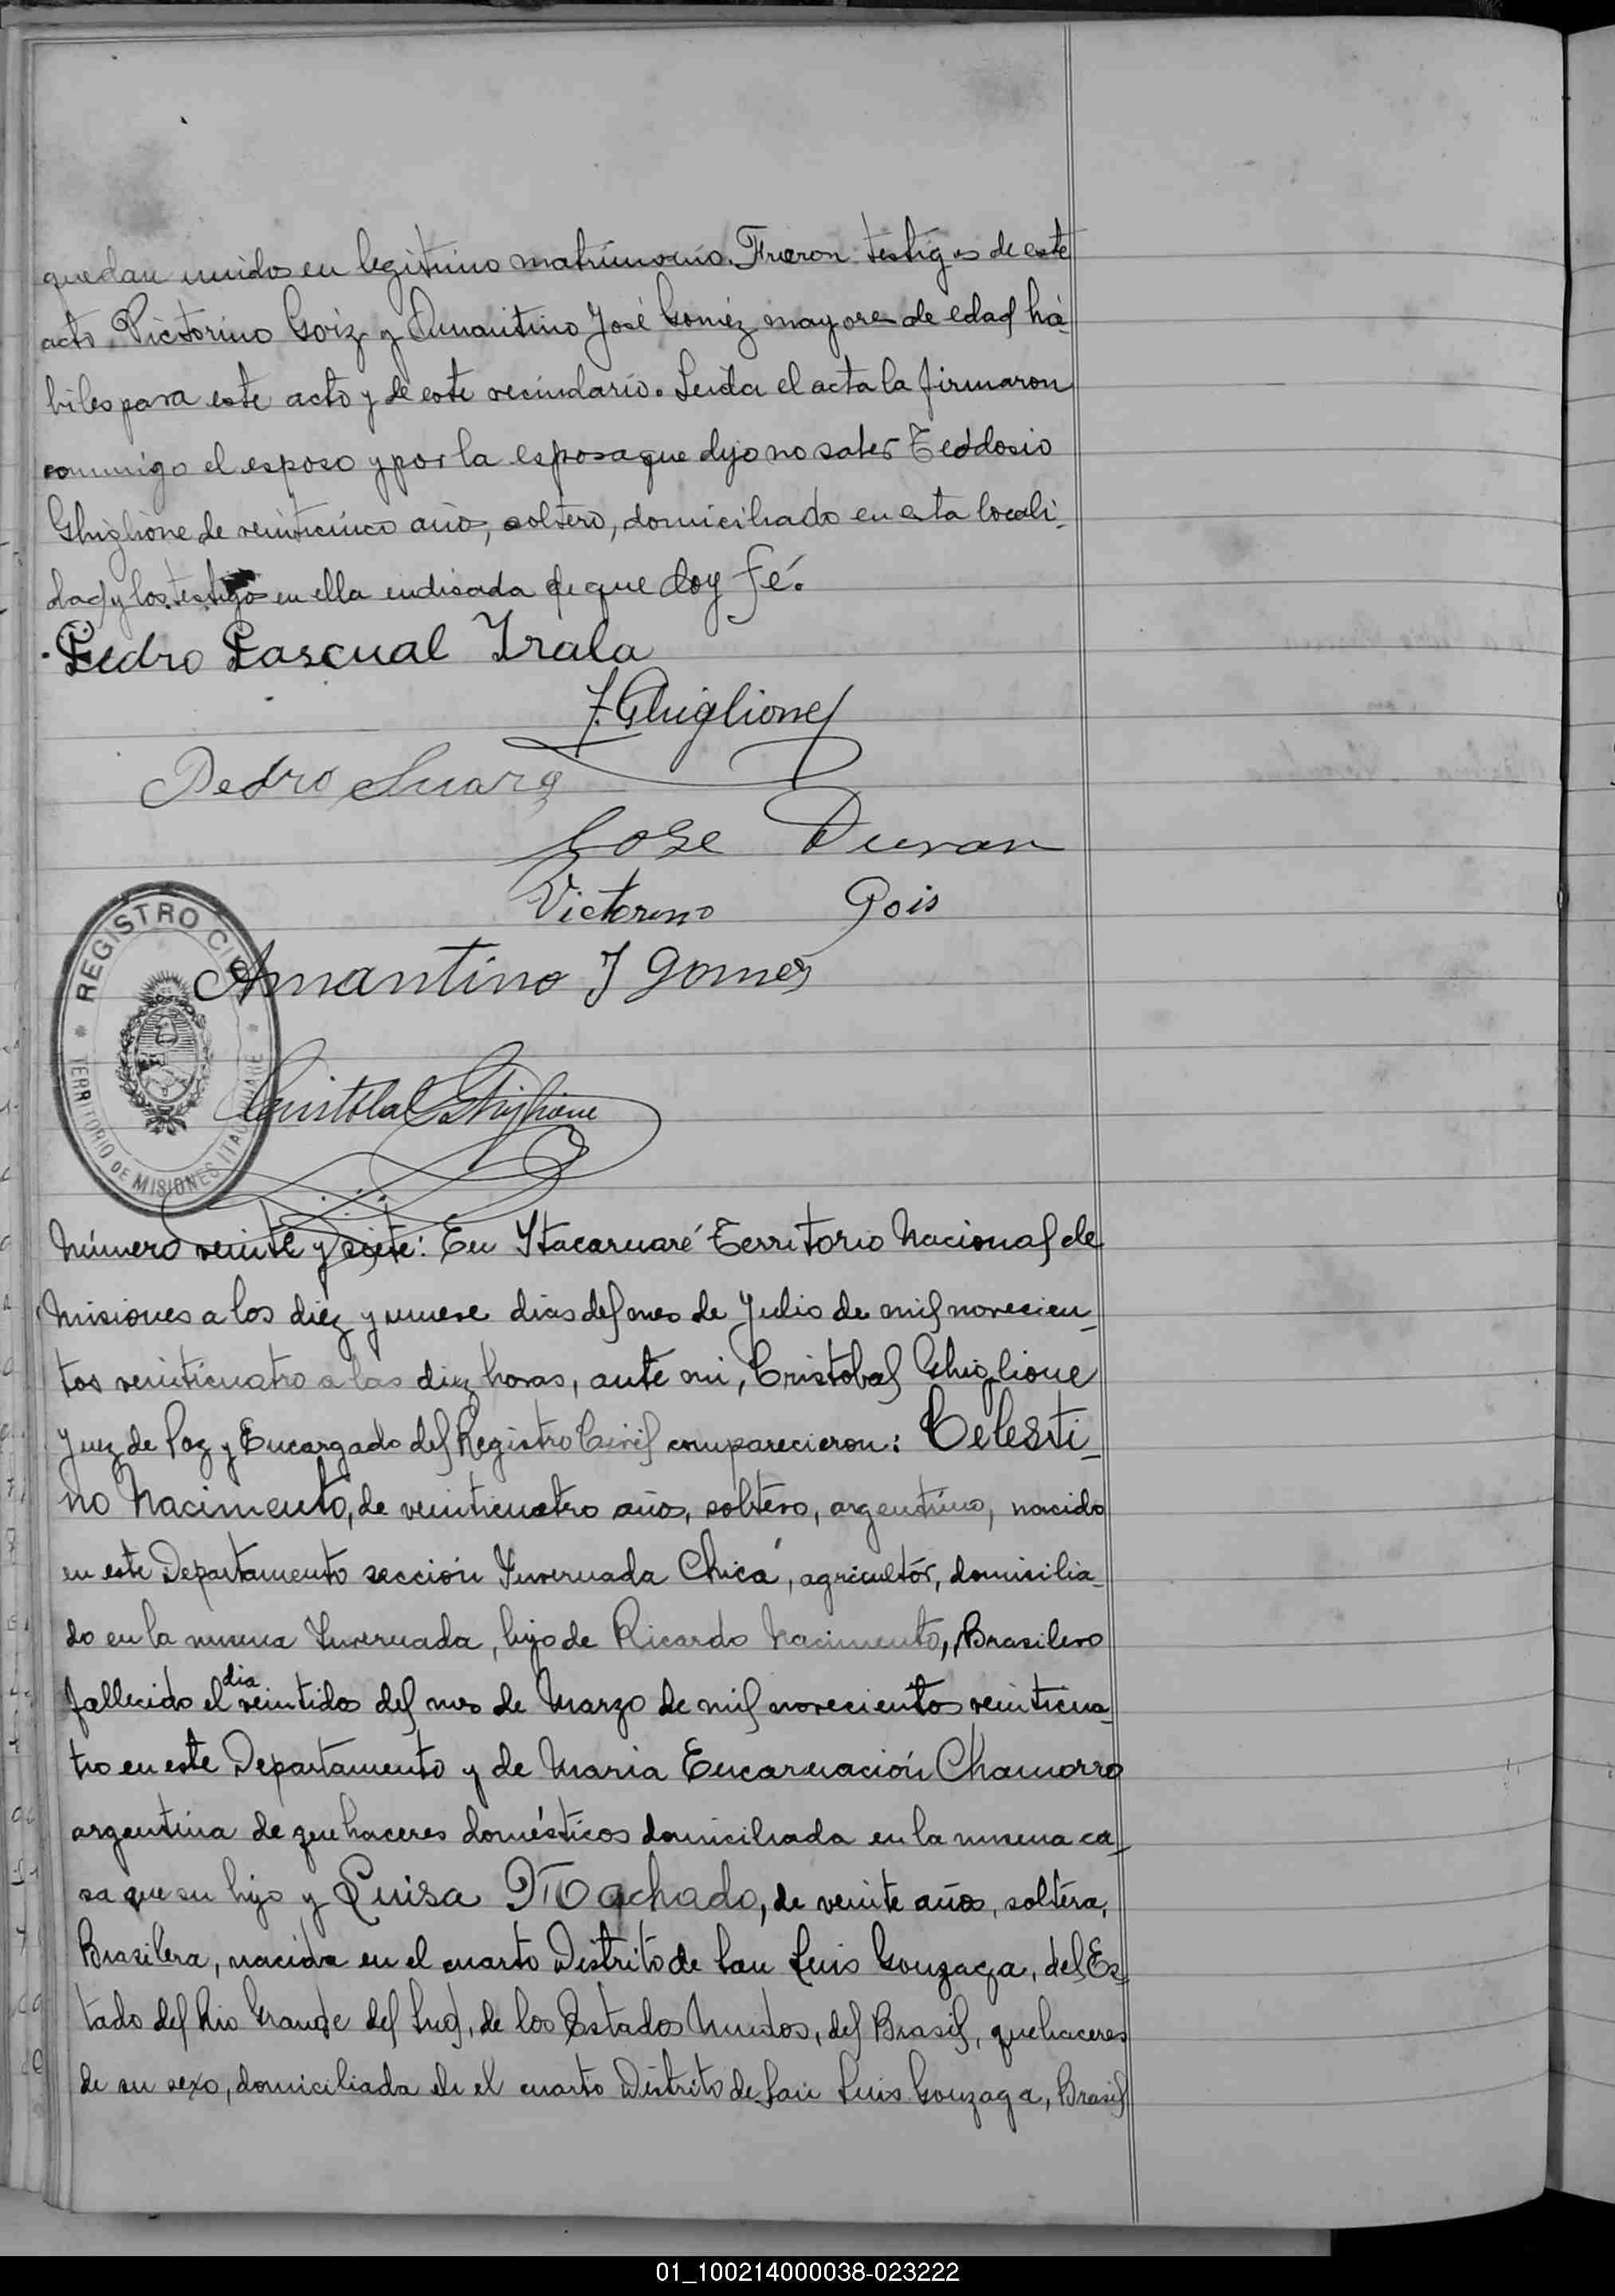 quedan unidos en legitimo matrimonio. Fueron testigos de este
acto, Victorino Goiz y Amantino José Gomez mayores de edad há-
biles para este acto y de este vecindario. Leida el acta la firmaron
conmigo el esposo y por la esposa que dijo no saber Teodosio
Ghiglione de veinticinco años, soltero, domiciliado en esta locali-
dad y los testigos en ella indicada de que doy fé.
Pedro Pascual Irala
T. Ghiglione
Pedro Suarez
Jose Duran
Victorino Gois
Amantino J Gomes
REGISTRO CIVIL
TERRITORIO DE MISIONES ITACARUARE
Cristobal Ghiglione
Número veinte y siete: En Itacaruaré Territorio Nacional de
Misiones a los diéz y nueve dias del mes de Julio de mil novecien-
tos veinticuatro a las diez horas, ante mi, Cristobal Ghiglione
Juez de Paz y Encargado del Registro Civil comparecieron: Celesti-
no Nacimento, de veinticuatro años, soltero, argentino, nacido
en este Departamento sección Invernada Chica, agricultór, domicilia-
do en la misma Invernada, hijo de Ricardo Nacimento, Brasilero
fallecido el dia veintidos del mes de Marzo de mil novecientos veinticua-
tro en este Departamento y de Maria Encarnación Chamorro
argentina de quehaceres domésticos domiciliada en la misma ca-
sa que su hijo y Luisa Machado, de veinte años, soltera,
Brasilera, nacida en el cuarto Distrito de San Luis Gonzaga, del Es-
tado del Rio Grande del Sud, de los Estados Unidos, del Brasil, quehaceres
de su sexo, domiciliada en el cuarto Distrito de San Luis Gonzaga, Brasil
01_100214000038-023222